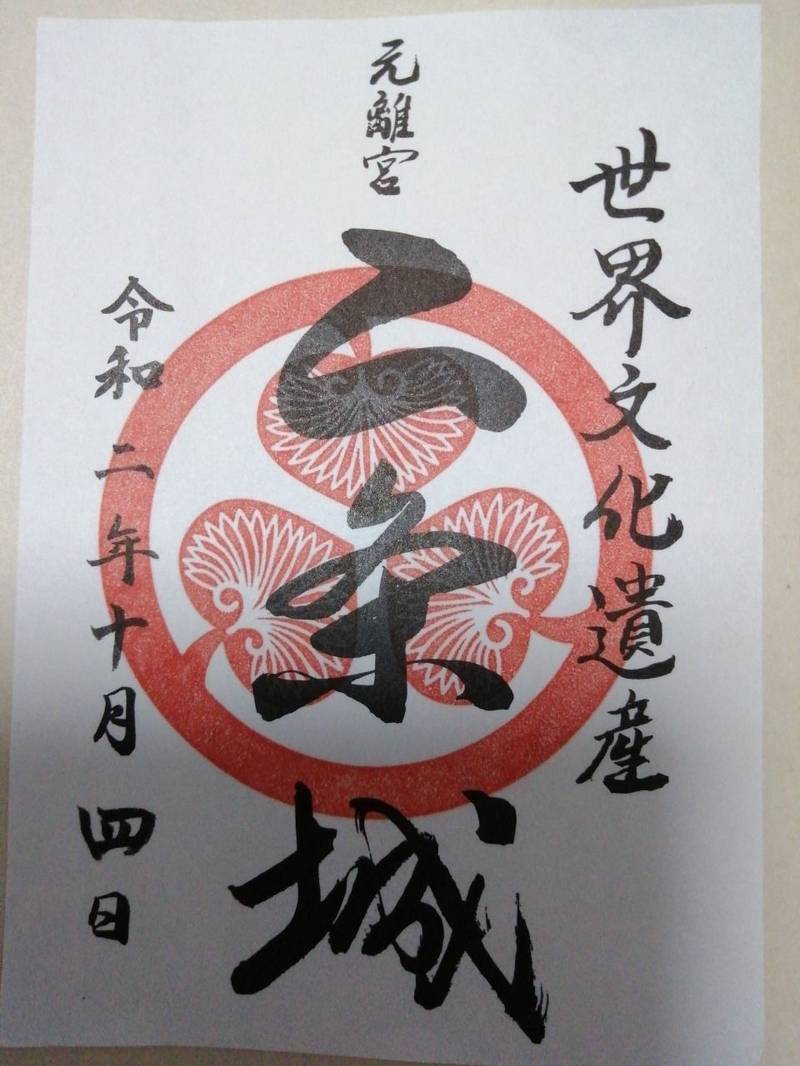 世界文化遺産
元離宮
二条城
令和二年十月四日